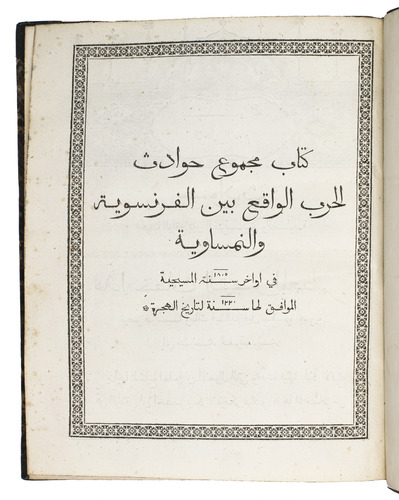 كتاب مجموع حوادث
الحرب الواقع بين الفرنسوية
والنمساوية
في اواخر سنة ١٨٠٥ المسيحية
الموافق لها سنة ١٢٢٠ لتاريخ الهجرة